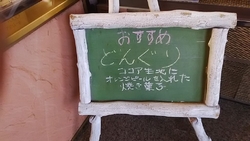 おすすめ
どんぐり
ココア生地に
オレンジピールを入れた
焼き菓子